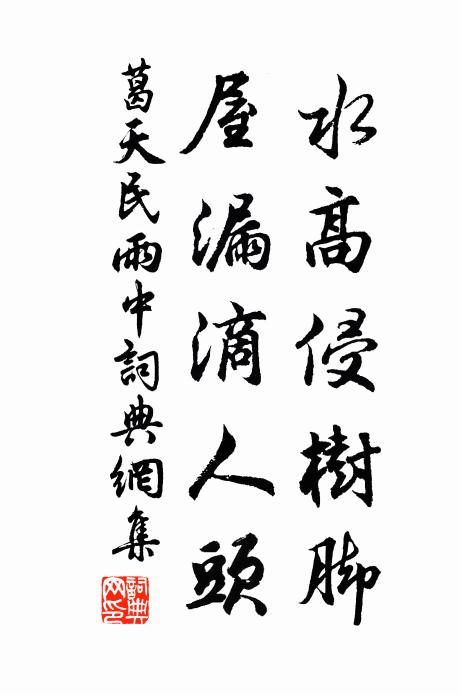 水高侵樹脚
屋漏滴人頭
葛天民雨中詞典網集
詞典網印